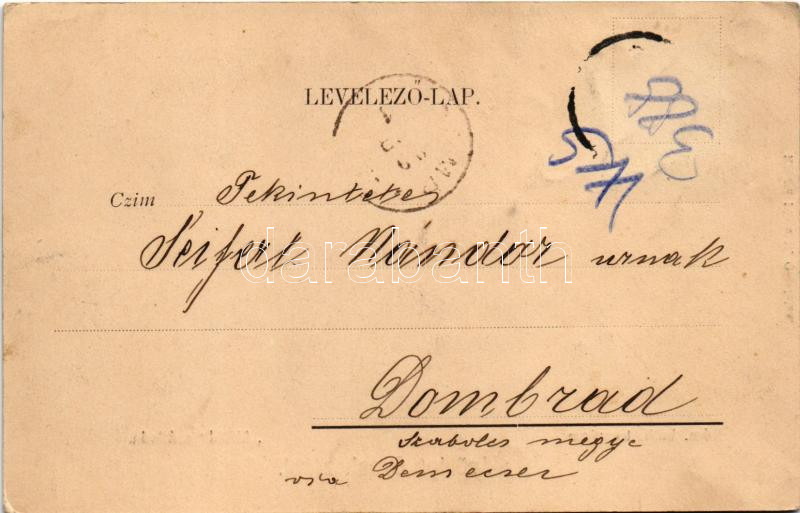 LEVELEZŐ-LAP.
Czim Tekintetes
Seifert Nandor urnak
darabanth
Dombrad
Szabolcs megye
via Demecser